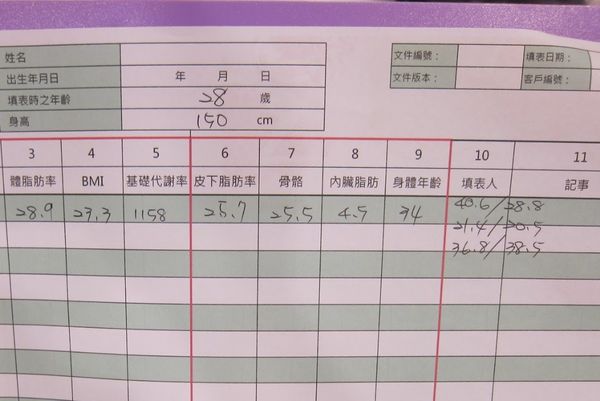 姓名
出生年月日 年 月 日
填表時之年齡 28 歲
身高 150 cm
文件編號： 填表日期：
文件版本： 客戶編號：
3 4 5 6 7 8 9 10 11
體脂肪率 BMI 基礎代謝率 皮下脂肪率 骨骼 內臟脂肪 身體年齡 填表人 記事
28.9 23.3 1158 25.7 25.5 4.5 34 40.6/28.8
21.4/20.5
36.8/38.5